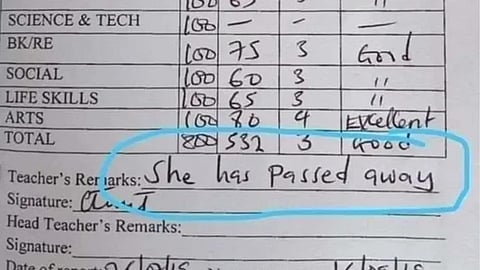 SCIENCE & TECH 100 — —
BK/RE 100 75 3 Good
SOCIAL 100 60 3 "
LIFE SKILLS 100 65 3 "
ARTS 100 80 4 Excellent
TOTAL 800 532 3 GOOD
Teacher's Remarks: She has passed away
Signature:
Head Teacher's Remarks:
Signature: